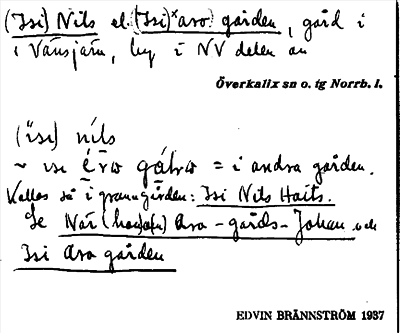 (Isi) Nils el. (Isi) ×aro gården, gård i
i Vänsjärn, by i NV delen av
Överkalix sn o. tg Norrb. l.
( isi) nils
~ isi = i andra gården.
Kallas så i granngården: Isi Nils Haits.
Se När ( ) Ara-gårds-Johan och
Isi Ara gården
EDVIN BRÄNNSTRÖM 1937